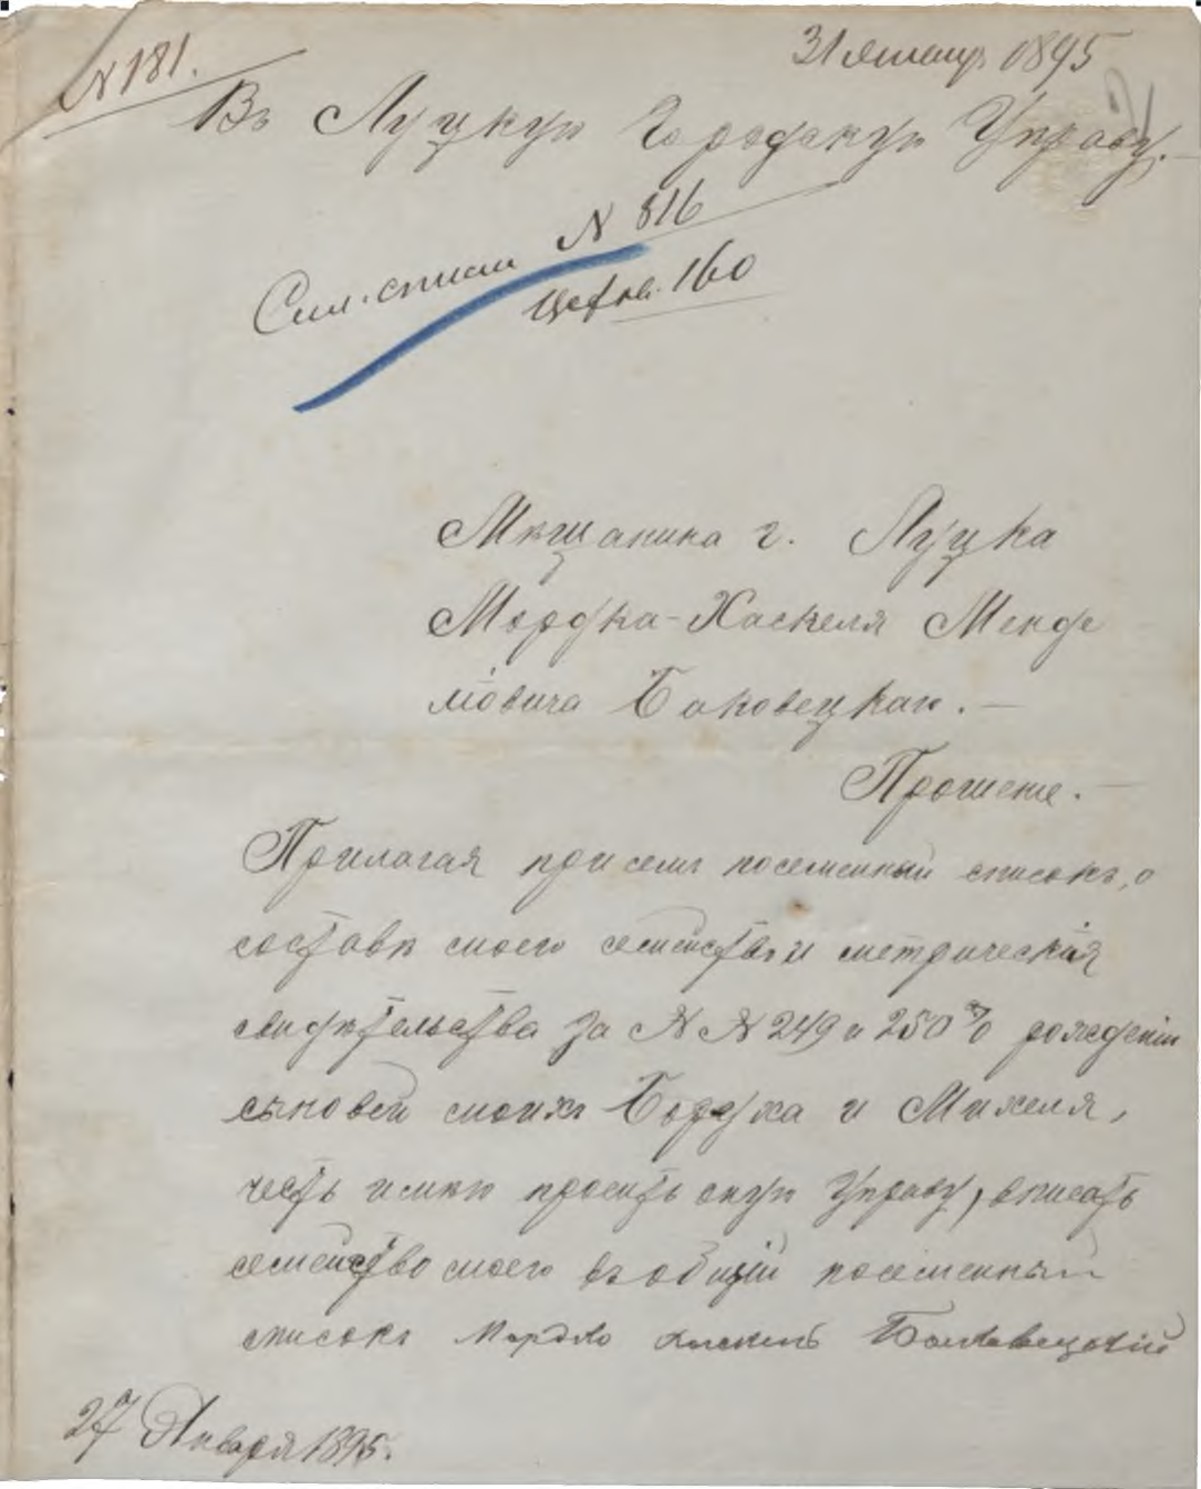 № 181.
31 январ 1895
Въ Луцкую Городскую Управу.
Сем. списки № 816
160
Мѣщанина г. Луцка
Мордка-Хаскеля Менде
лiовича Баковецкаго.
Прошенiе.
Прилагая при семъ посемейный списокъ, о
составѣ моего семейства и метрическiя
свидѣтельства за №№ 249 и 250 о рожденiи
сыновей моихъ Бордха и Михеля,
честь имѣю просить оную Управу, вписать
семейство моего въ общiй посемейный
списокъ Мордко Хаскель Баковецкiй
27 Января 1895.